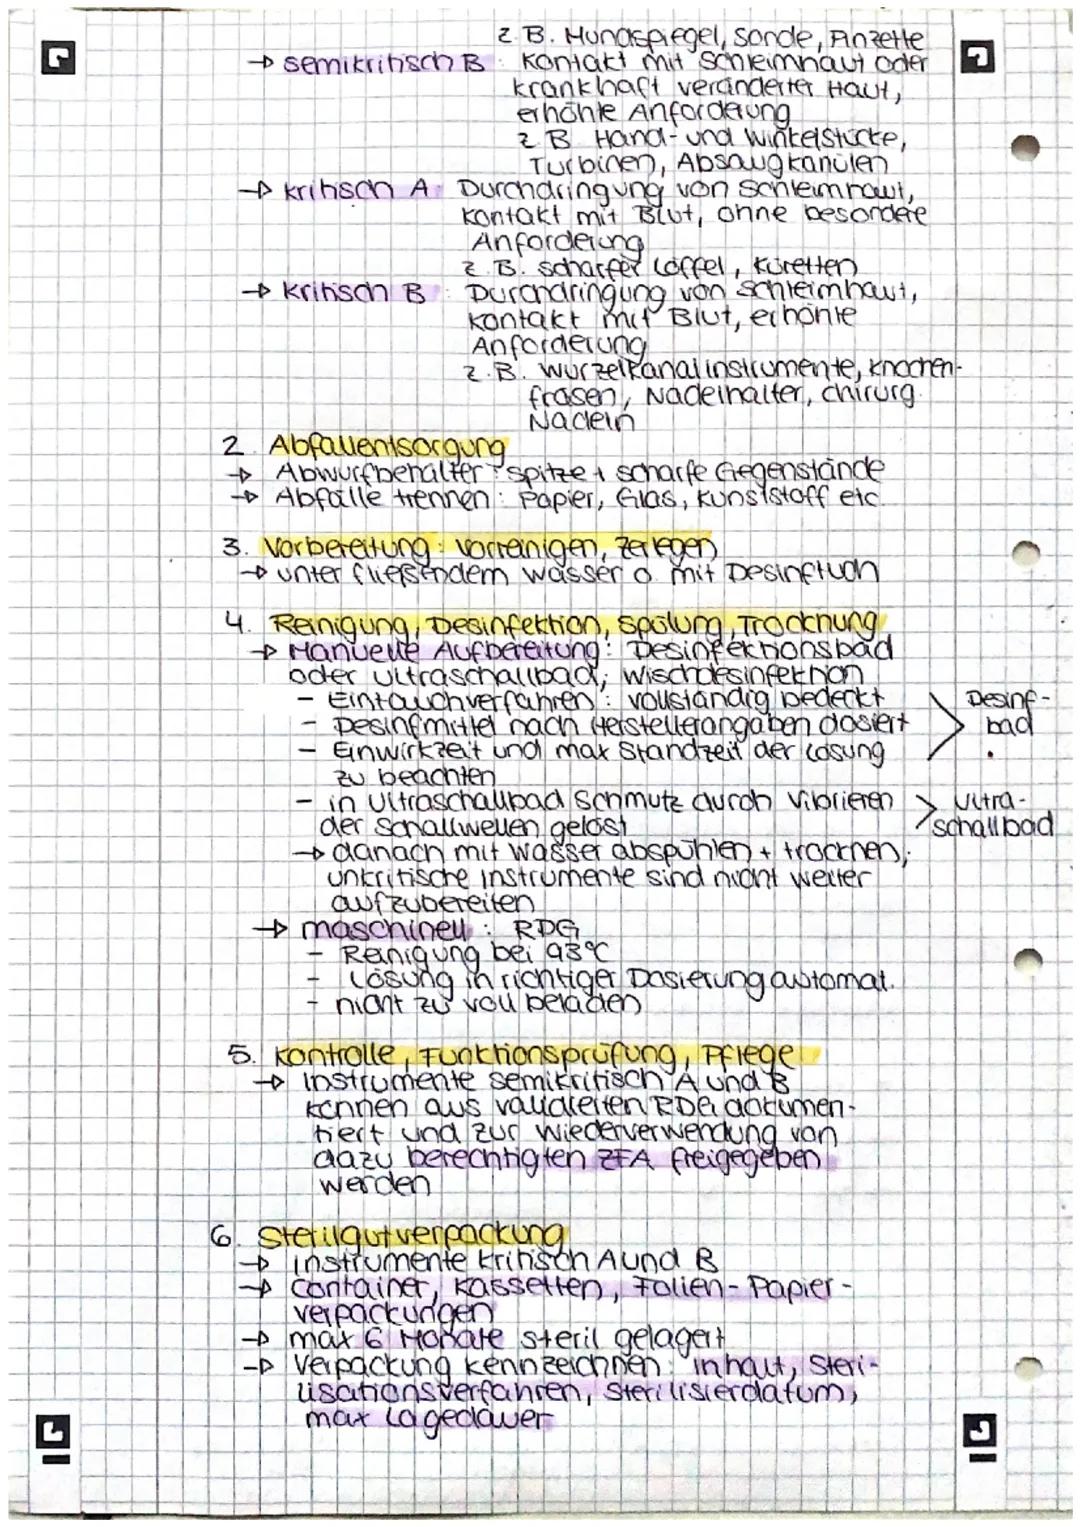 z.B. Mundspiegel, Sonde, Pinzette
→ semikritisch B: Kontakt mit Schleimhaut oder
krankhaft veränderter Haut,
erhöhte Anforderung
z.B. Hand- und Winkelstücke,
Turbinen, Absaugkanülen
→ kritisch A: Durchdringung von Schleimhaut,
Kontakt mit Blut, ohne besondere
Anforderung
z.B. scharfer Löffel, Küretten
→ kritisch B: Durchdringung von Schleimhaut,
Kontakt mit Blut, erhöhte
Anforderung
z.B. Wurzelkanalinstrumente, Knochen-
fräsen, Nadelhalter, chirurg.
Nadeln
2. Abfallentsorgung
→ Abwurfbehälter: spitze + scharfe Gegenstände
→ Abfälle trennen: Papier, Glas, Kunststoff etc.
3. Vorbereitung: Vorreinigen, Zerlegen
→ unter fließendem Wasser o. mit Desinftuch
4. Reinigung, Desinfektion, Spülung, Trocknung
→ Manuelle Aufbereitung: Desinfektionsbad
oder Ultraschallbad, Wischdesinfektion
- Eintauchverfahren: vollständig bedeckt
- Desinfmittel nach Herstellerangaben dosiert
- Einwirkzeit und max Standzeit der Lösung
zu beachten
> Desinf-
bad
- in Ultraschallbad Schmutz durch Vibrieren
der Schallwellen gelöst
> Ultra-
schallbad
→ danach mit Wasser abspühlen + trocknen,
unkritische Instrumente sind nicht weiter
aufzubereiten
→ maschinell: RDG
- Reinigung bei 93°C
- Lösung in richtiger Dosierung automat.
- nicht zu voll beladen
5. Kontrolle, Funktionsprüfung, Pflege
→ Instrumente semikritisch A und B
können aus validierten RDG dokumen-
tiert und zur Wiederverwendung von
dazu berechtigten ZFA freigegeben
werden
6. Sterilgutverpackung
→ Instrumente kritisch A und B
→ Container, Kassetten, Folien-Papier-
verpackungen
→ max 6 Monate steril gelagert
→ Verpackung kennzeichnen: Inhalt, Steri-
lisationsverfahren, Sterilisierdatum,
max Lagedauer